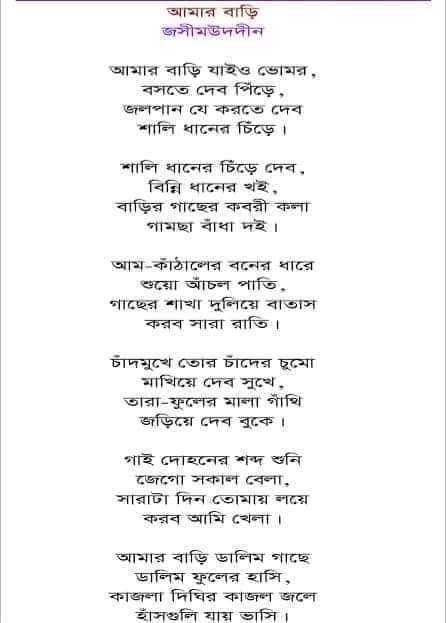 আমার বাড়ি
জসীমউদদীন
আমার বাড়ি যাইও ভোমর,
বসতে দেব পিঁড়ে,
জলপান যে করতে দেব
শালি ধানের চিঁড়ে।
শালি ধানের চিঁড়ে দেব,
বিন্নি ধানের খই,
বাড়ির গাছের কবরী কলা
গামছা বাঁধা দই।
আম-কাঁঠালের বনের ধারে
শুয়ো আঁচল পাতি,
গাছের শাখা দুলিয়ে বাতাস
করব সারা রাতি।
চাঁদমুখে তোর চাঁদের চুমো
মাখিয়ে দেব সুখে,
তারা-ফুলের মালা গাঁথি
জড়িয়ে দেব বুকে।
গাই দোহনের শব্দ শুনি
জেগো সকাল বেলা,
সারাটা দিন তোমায় লয়ে
করব আমি খেলা।
আমার বাড়ি ডালিম গাছে
ডালিম ফুলের হাসি,
কাজলা দিঘির কাজল জলে
হাঁসগুলি যায় ভাসি।